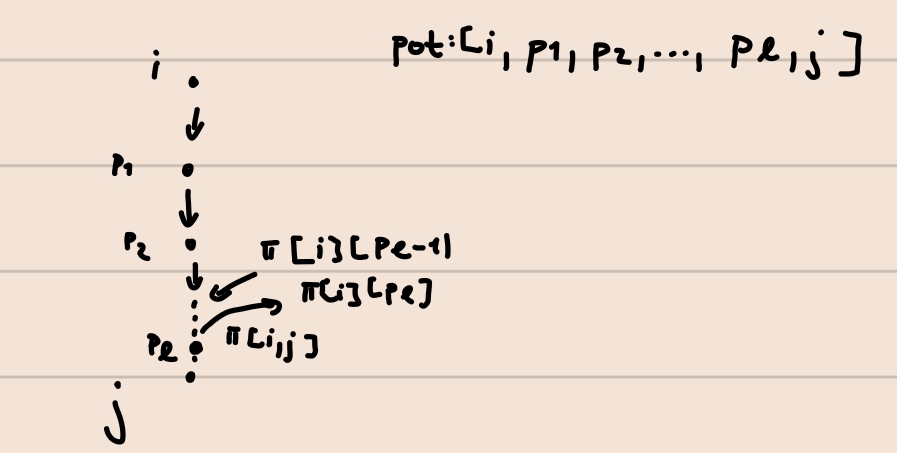 pot:[i, p1, p2, ..., pl, j]
i
p1
p2
π[i][pl-1]
π[i][pl]
pl
π[i,j]
j